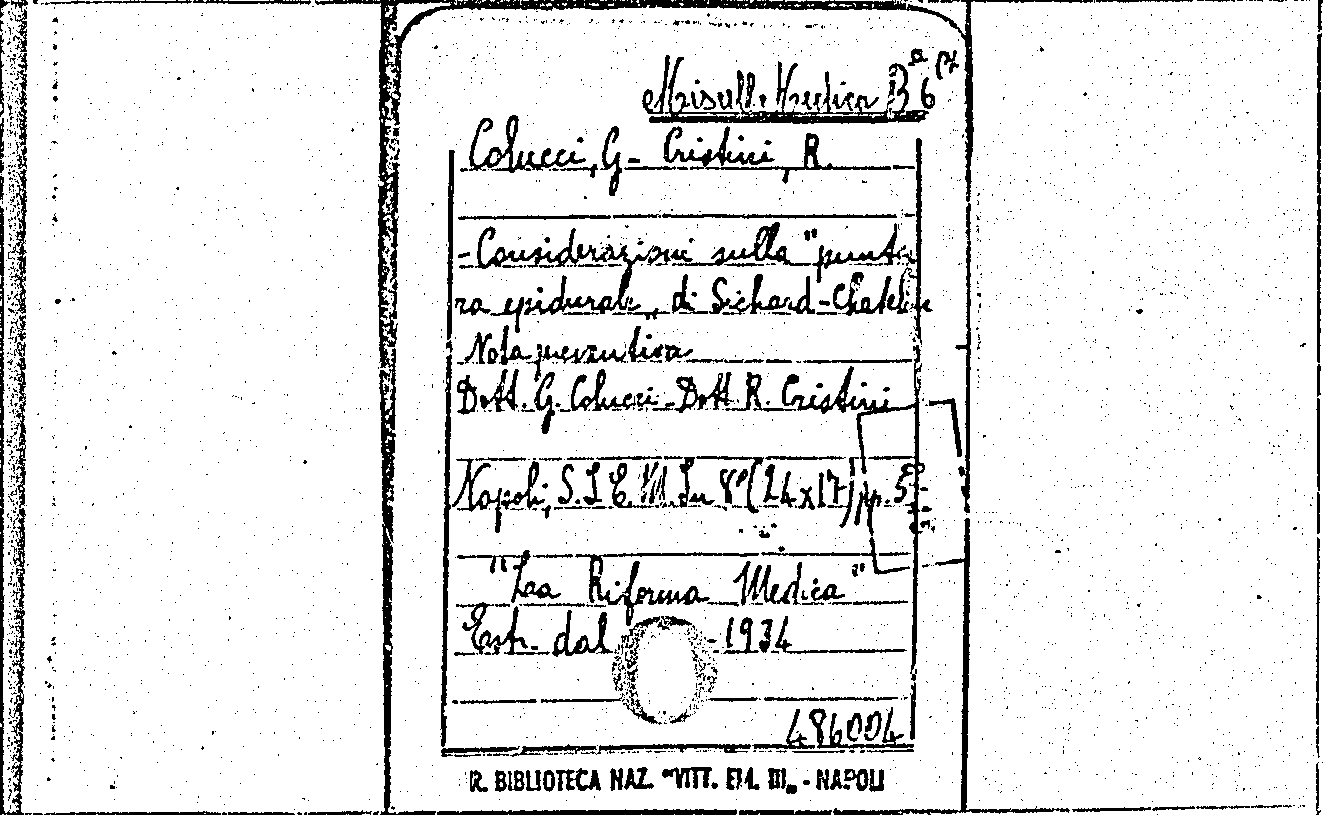 Miscell. Medica B 6
Colucci, G - Cristini, R.
- Considerazioni sulla "puntu
ra epidurale„ di Sichard-Chatelin
Nota preventiva
Dott. G. Colucci - Dott R. Cristini
Napoli, S.I.E.M. In 8° (24x17) pp. 5
"La Riforma Medica"
Estr. dal -1934
486004
R. BIBLIOTECA NAZ. "VITT. EM. III„ - NAPOLI